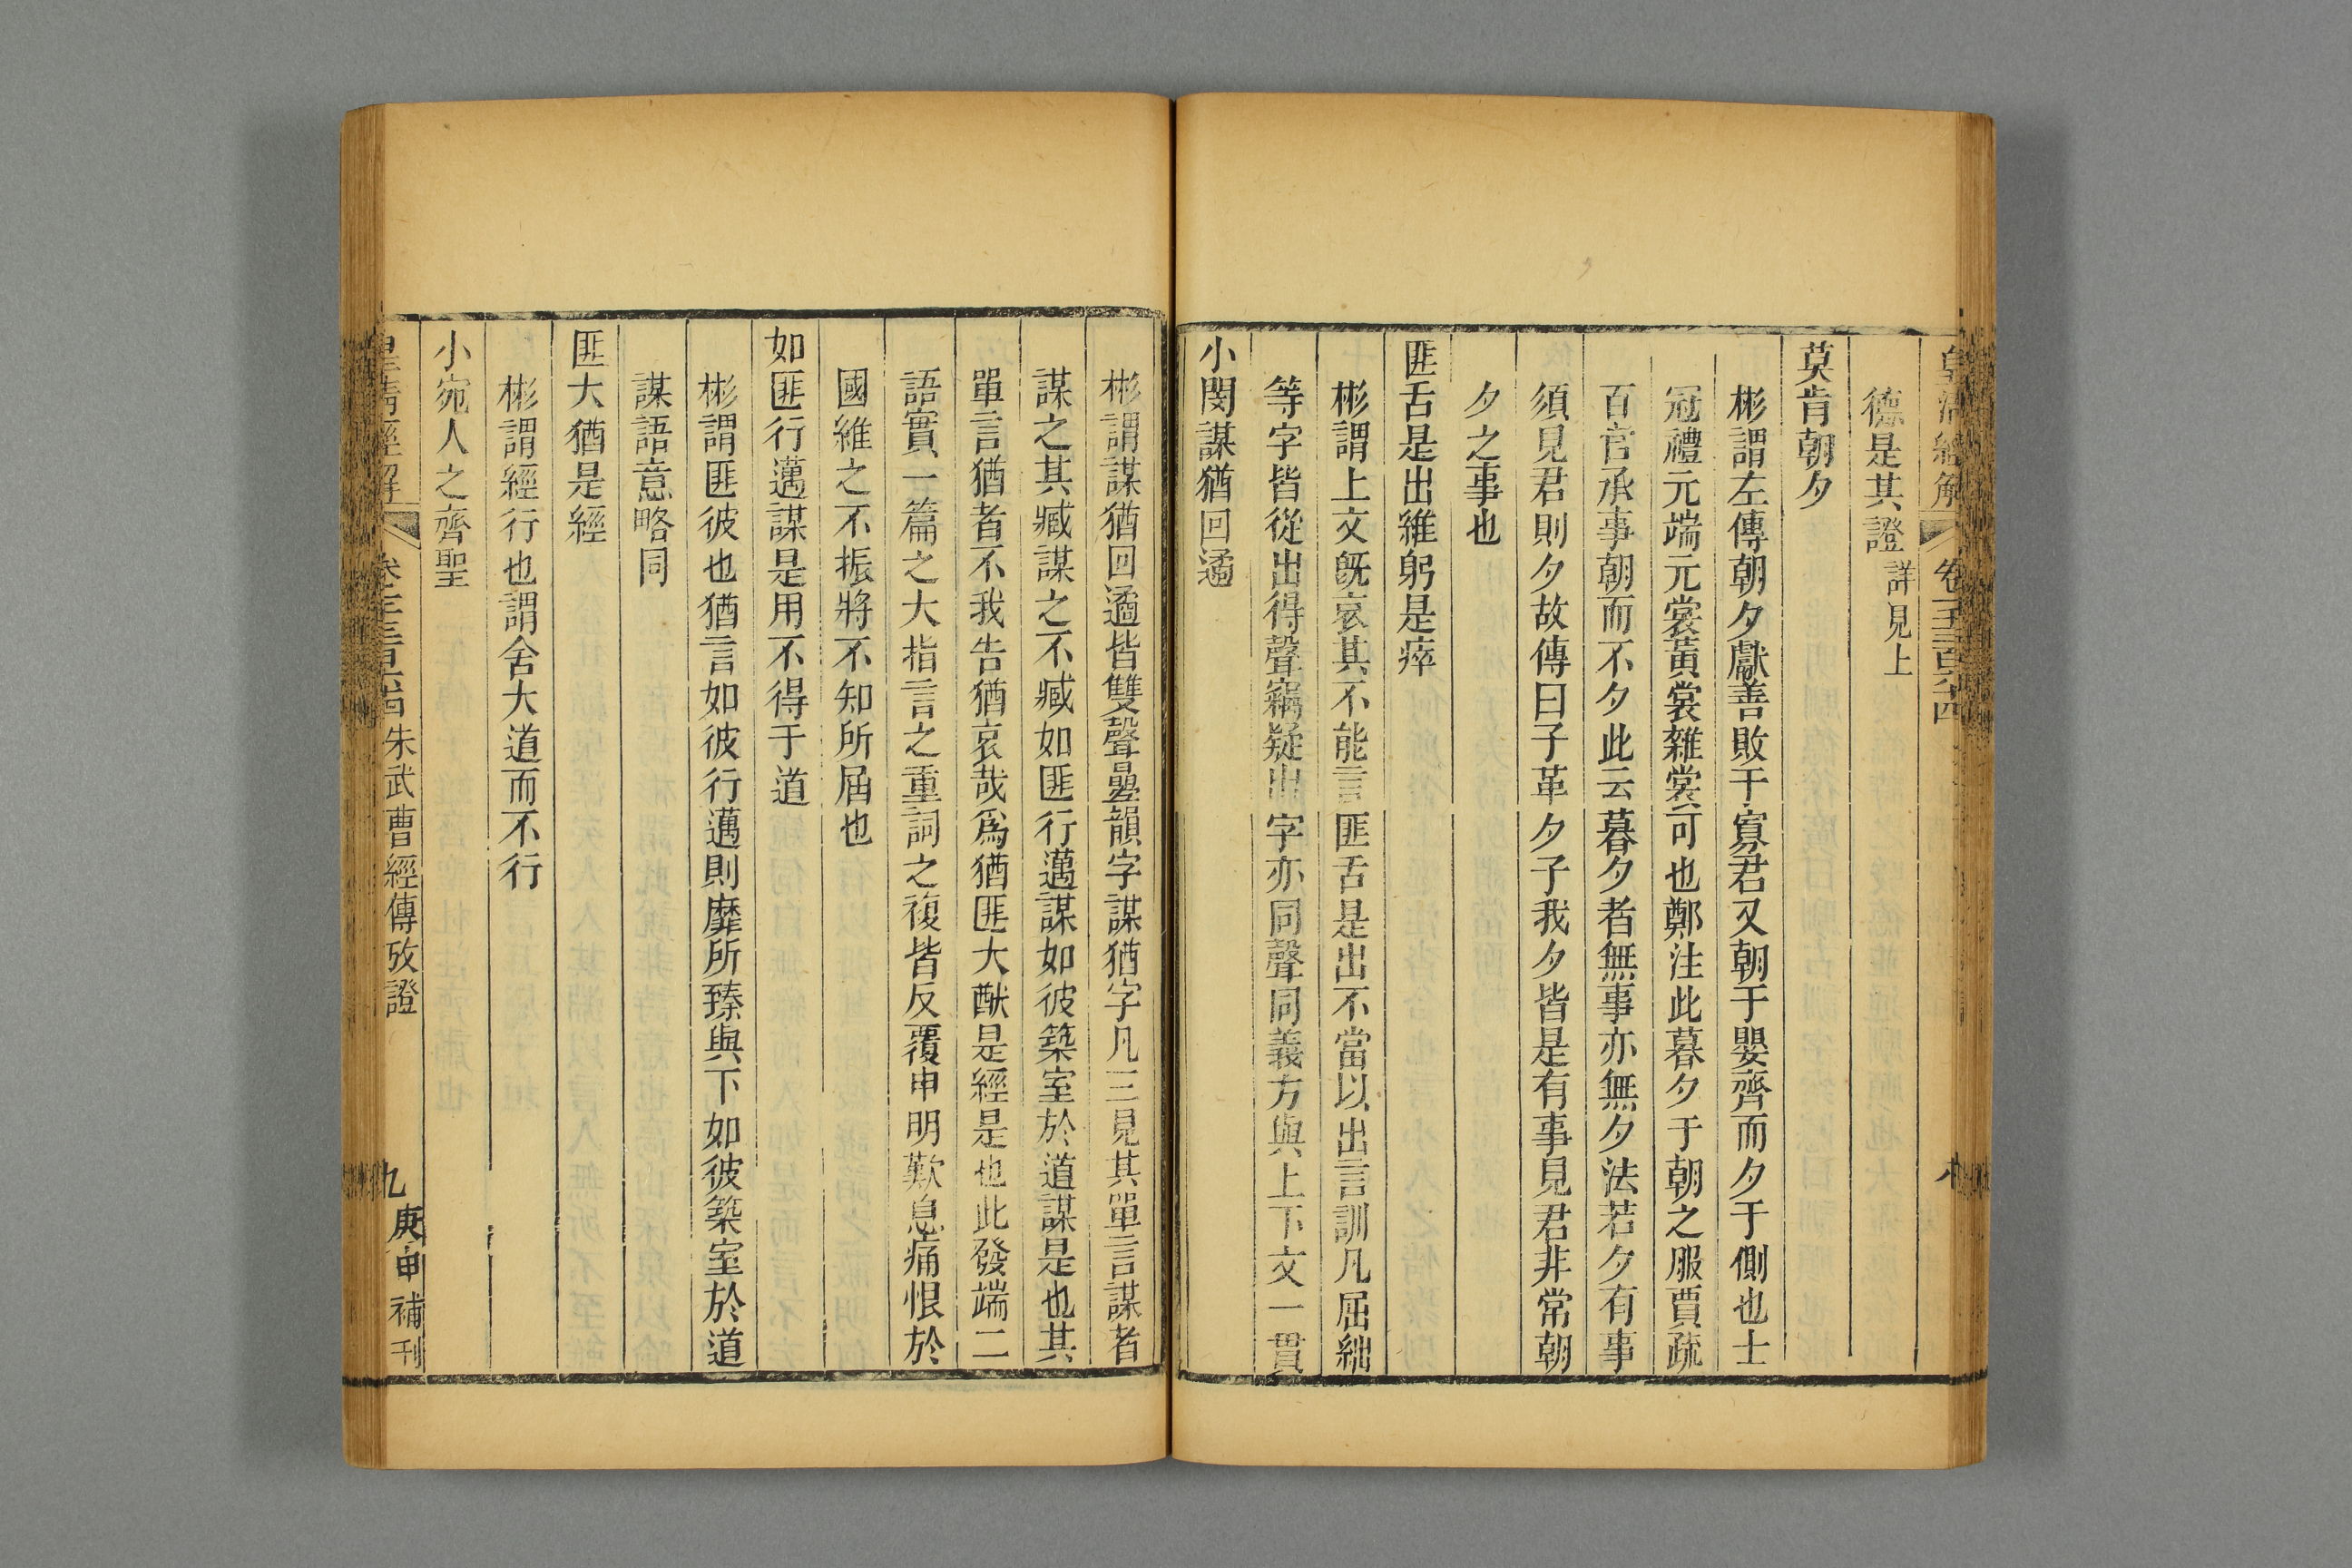 皇清經解 卷一千三百六十四 八
德是其證詳見上
莫肯朝夕
彬謂左傳朝夕獻善敗于寡君又朝于嬰齊而夕于側也士
冠禮元端元裳黃裳雜裳可也鄭注此暮夕于朝之服賈疏
百官承事朝而不夕此云暮夕者無事亦無夕法若夕有事
須見君則夕故傳曰子革夕子我夕皆是有事見君非常朝
夕之事也
匪舌是出維躬是瘁
彬謂上文旣哀其不能言匪舌是出不當以出言訓凡屈絀
等字皆從出得聲竊疑出字亦同聲同義方與上下文一貫
小閔謀猶回遹
彬謂謀猶回遹皆雙聲疊韻字謀猶字凡三見其單言謀者
謀之其臧謀之不臧如匪行邁謀如彼築室於道謀是也其
單言猶者不我告猶哀哉爲猶匪大猷是經是也此發端二
語實一篇之大指言之重詞之複皆反覆申明歎息痛恨於
國維之不振將不知所屆也
如匪行邁謀是用不得于道
彬謂匪彼也猶言如彼行邁則靡所臻與下如彼築室於道
謀語意略同
匪大猶是經
彬謂經行也謂舍大道而不行
小宛人之齊聖
皇清經解 卷一千三百六十四 朱武曹經傳攷證 九 庚申補刊